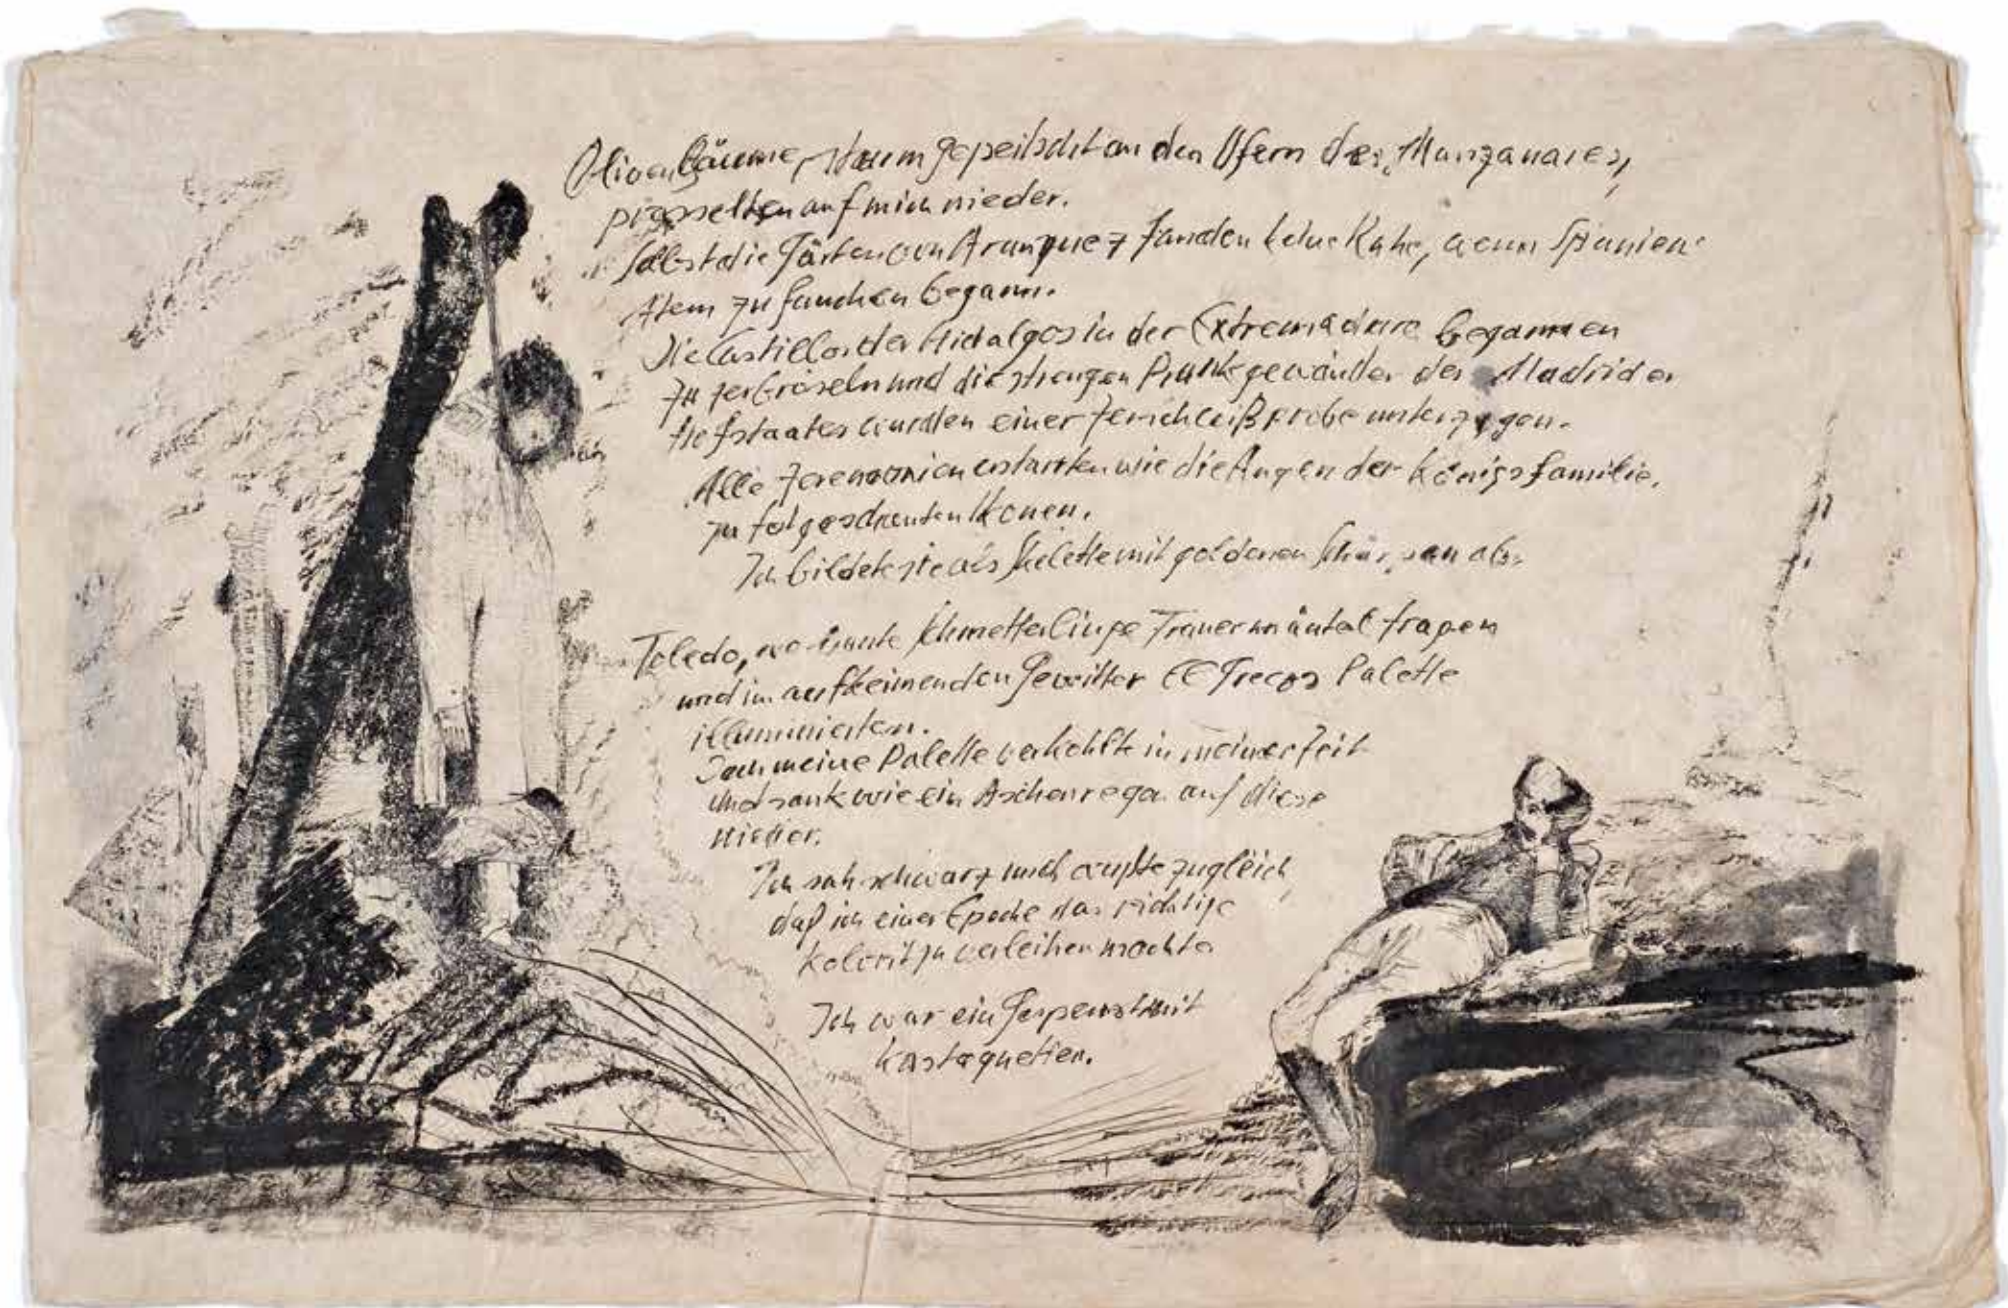 Olivenbäume, sturmgepeitscht an den Ufern des Manzanares,
prasselten auf mich nieder.
Selbst die Gärten von Aranquez fanden keine Ruhe, wenn Spaniens
Atem zu fauchen begann.
Die Castillos der Hidalgos in der Extremadura begannen
zu zerbröseln und die strengen Prunkgewänder des Madrider
Hofstaates wurden einer Zerreißprobe unterzogen.
Alle Zeremonien erstarrten wie die Augen der Königsfamilie,
zu Ikonen.
Ich bildete sie als Skelette mit goldenen ab.
Toledo, wo bunte Schmetterlinge Trauermäntel tragen
und im aufkeimenden Gewitter El Grecos Palette
illuminierten.
Doch meine Palette verkohlte in meiner Zeit
und sank wie ein Aschenregen auf diese
nieder.
Ich sah schwarz und wußte zugleich,
daß ich einer Epoche das richtige
Kolorit zu verleihen mochte.
Ich war ein Gespenst mit
Kastagnetten.